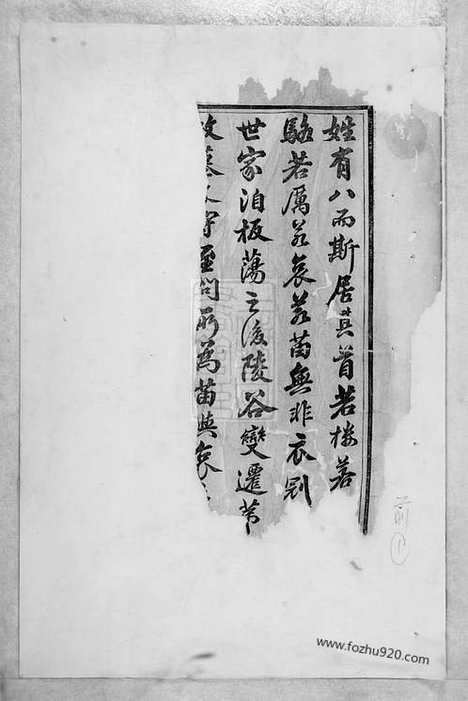 姓有八而斯居其首若樓若
駱若厲若袁若苗無非衣別
世家洎板蕩之後陵谷變遷
為苗與
前
www.fozhu920.com